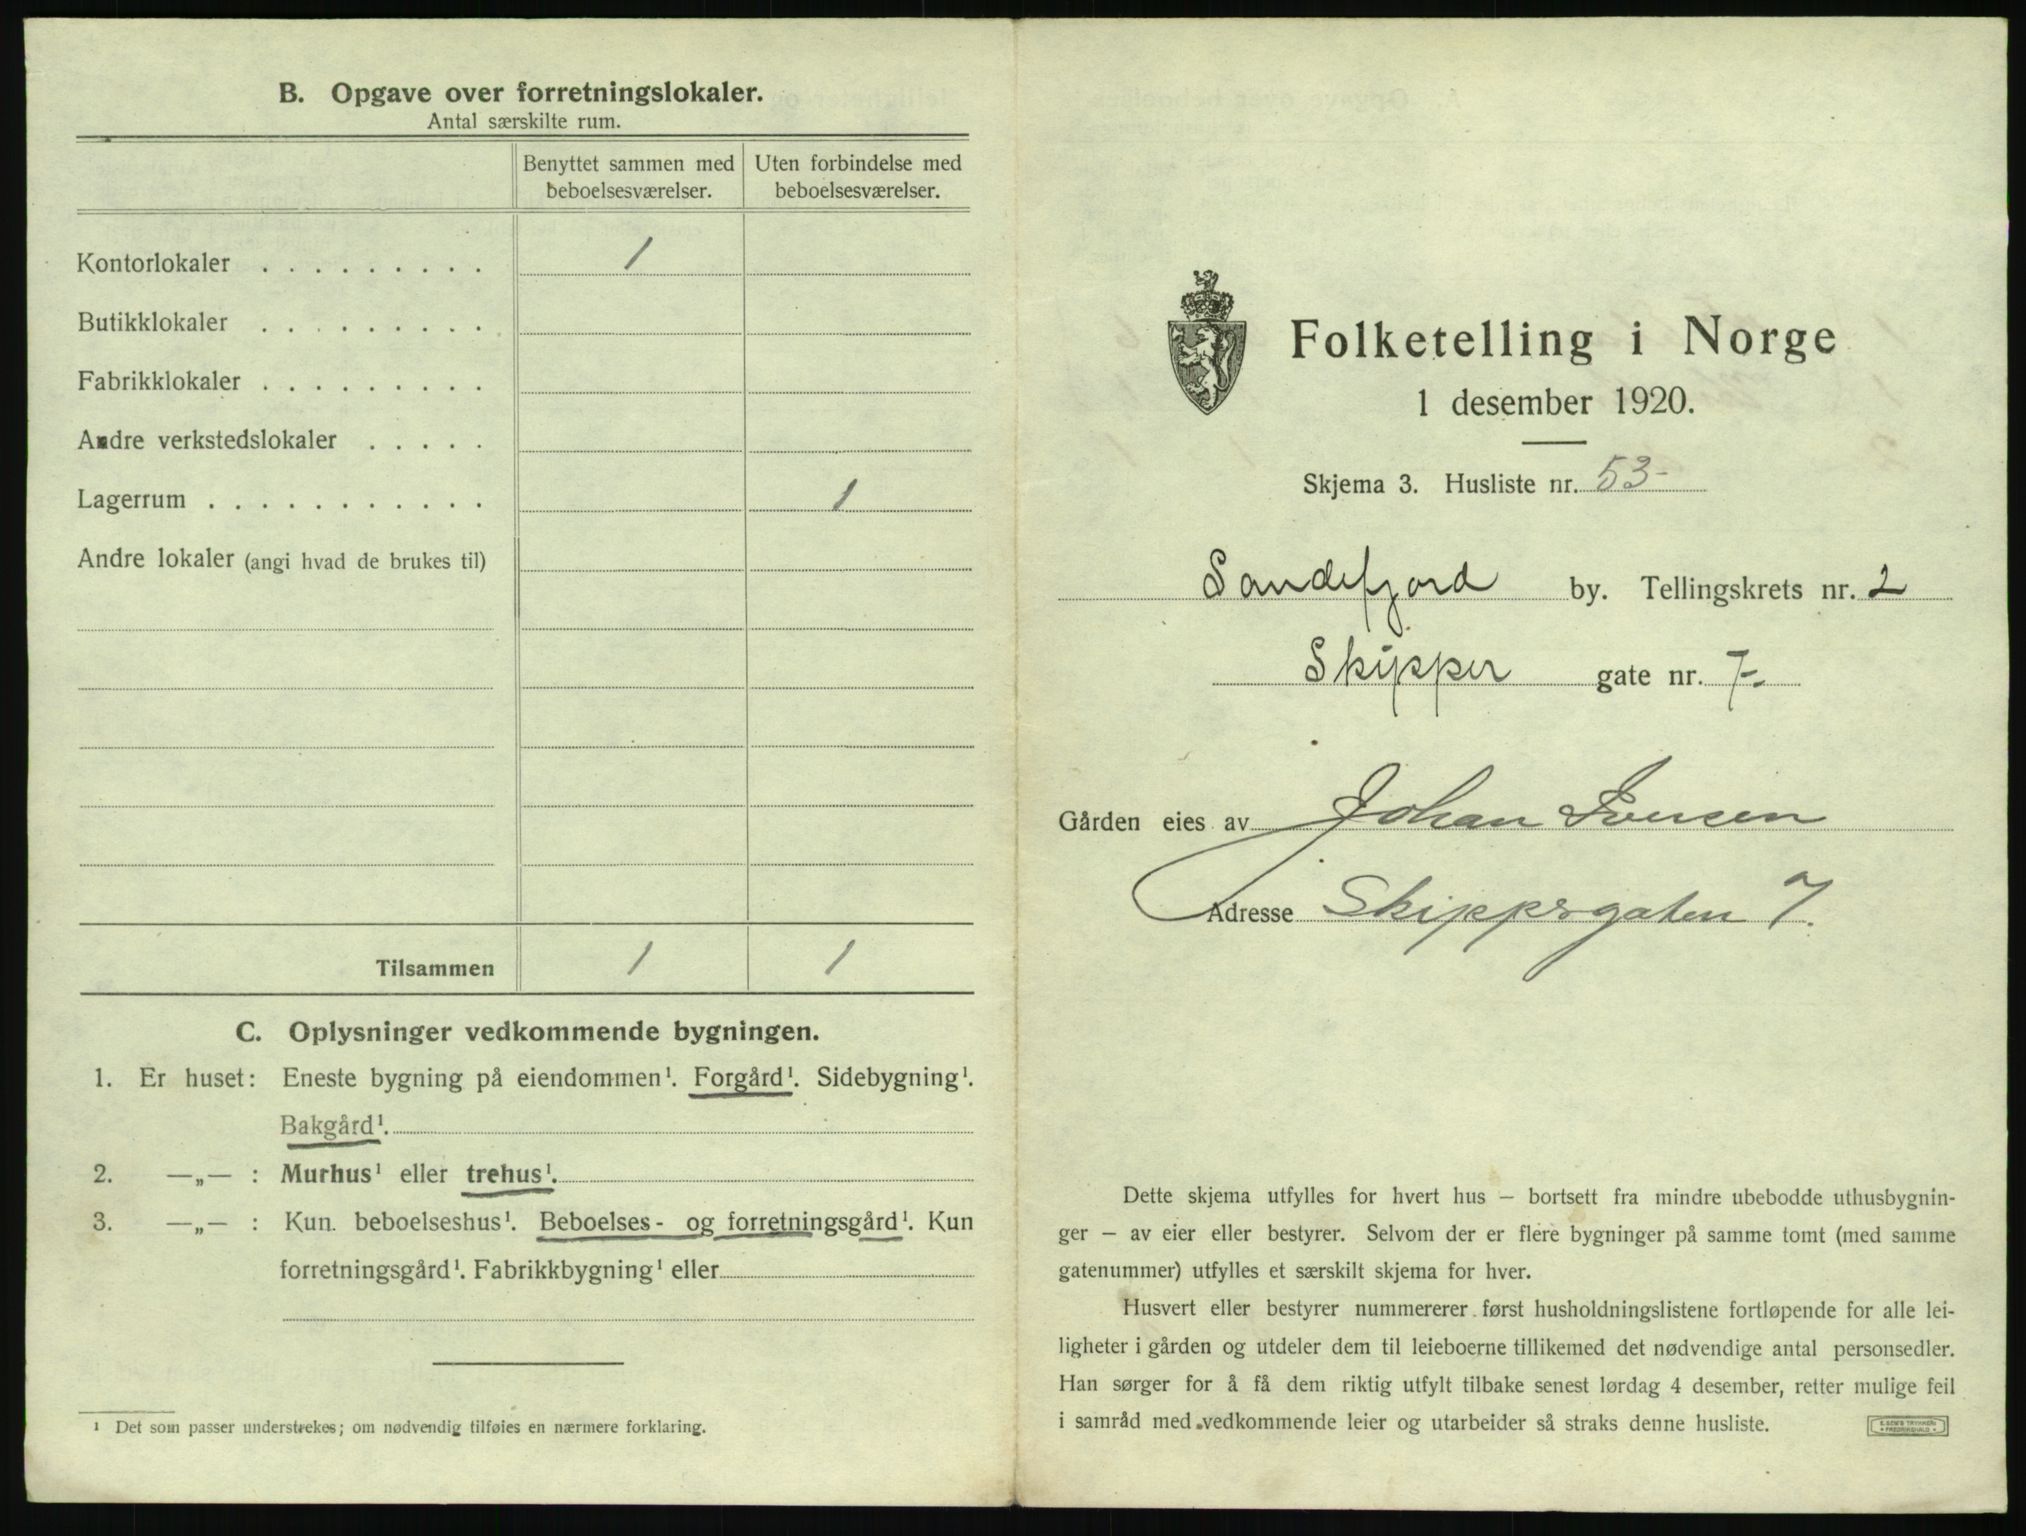 B. Opgave over forretningslokaler.
Antal særskilte rum.
Benyttet sammen med beboelsesværelser.
Uten forbindelse med beboelsesværelser.
Kontorlokaler . . . . . . . . . 1
Butikklokaler . . . . . . . . .
Fabrikklokaler . . . . . . . . .
Andre verkstedslokaler . . . . .
Lagerrum . . . . . . . . . . . 1
Andre lokaler (angi hvad de brukes til)
Tilsammen 1 1
C. Oplysninger vedkommende bygningen.
1. Er huset: Eneste bygning på eiendommen¹. Forgård¹. Sidebygning¹.
Bakgård¹.
2. —„— : Murhus¹ eller trehus¹.
3. —„— : Kun beboelseshus¹. Beboelses- og forretningsgård¹. Kun
forretningsgård¹. Fabrikkbygning¹ eller
¹ Det som passer understrekes; om nødvendig tilføies en nærmere forklaring.
Folketelling i Norge
1 desember 1920.
Skjema 3. Husliste nr. 53-
Sandefjord by. Tellingskrets nr. 2
Skipper gate nr. 7-
Gården eies av Johan Iversen
Adresse Skippergaten 7.
Dette skjema utfylles for hvert hus — bortsett fra mindre ubebodde uthusbygnin-
ger — av eier eller bestyrer. Selvom der er flere bygninger på samme tomt (med samme
gatenummer) utfylles et særskilt skjema for hver.
Husvert eller bestyrer nummererer først husholdningslistene fortløpende for alle lei-
ligheter i gården og utdeler dem til leieboerne tillikemed det nødvendige antal personsedler.
Han sørger for å få dem riktig utfylt tilbake senest lørdag 4 desember, retter mulige feil
i samråd med vedkommende leier og utarbeider så straks denne husliste.